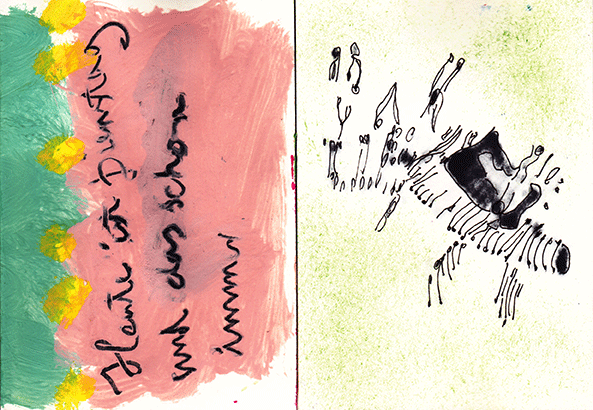 Heute ist Dienstag
und das schon
immer